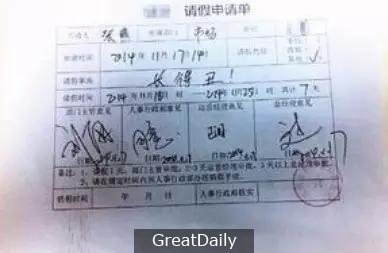 请假申请单
申请人 张 所属部门 市场 职位
申请时间 2014年11月17日14时 请假类别 其他√
请假事由 长得丑！
请假时间 2014年11月18日 — 2014年11月25日 共计7天
部门主管意见 人事行政部意见 运营经理意见 总经理意见
日期 日期 日期 日期
备注：1、请假1天，部门主管审批，2-3天运营经理审批，3天以上总经理审批。
2、请在规定时间内到人事行政部办理销假手续。
销假时间 年 月 日 人事行政部核实
GreatDaily